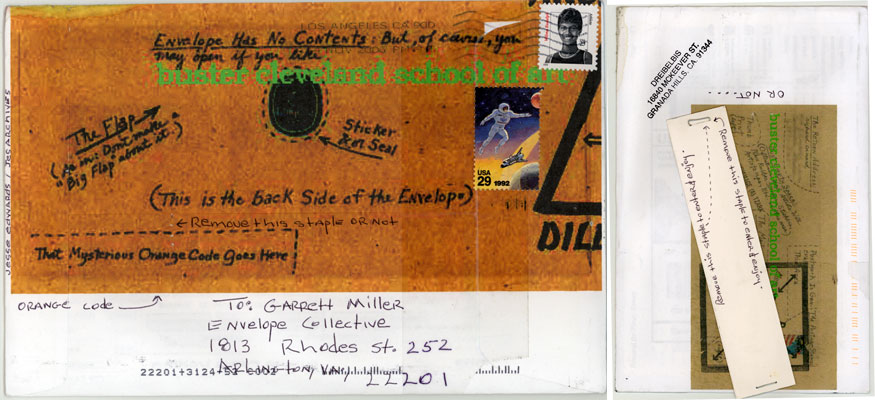 LOS ANGELES CA 900
Envelope Has No Contents: But, of course, you
may open if you like
buster cleveland school of art
The Flap
(As in: Don't make a
"Big Flap about it")
Sticker
& or Seal
USA
29 1992
(This is the back Side of the Envelope)
← Remove this staple OR NOT
That Mysterious Orange Code Goes Here
DILL
Jesse Edwards / JesArchives
ORANGE CODE
To: GARRETT MILLER
ENVELOPE COLLECTIVE
1813 Rhodes St. 252
ARLINGTON, VA
22201
22201+3124+52 C002
DREIBELBIS
16840 MCKEEVER ST.
GRANADA HILLS, CA. 91344
OR NOT.....
The Return Address:
buster cleveland school of art
Remove this staple to enter & enjoy.
Remove this staple to enter & enjoy.